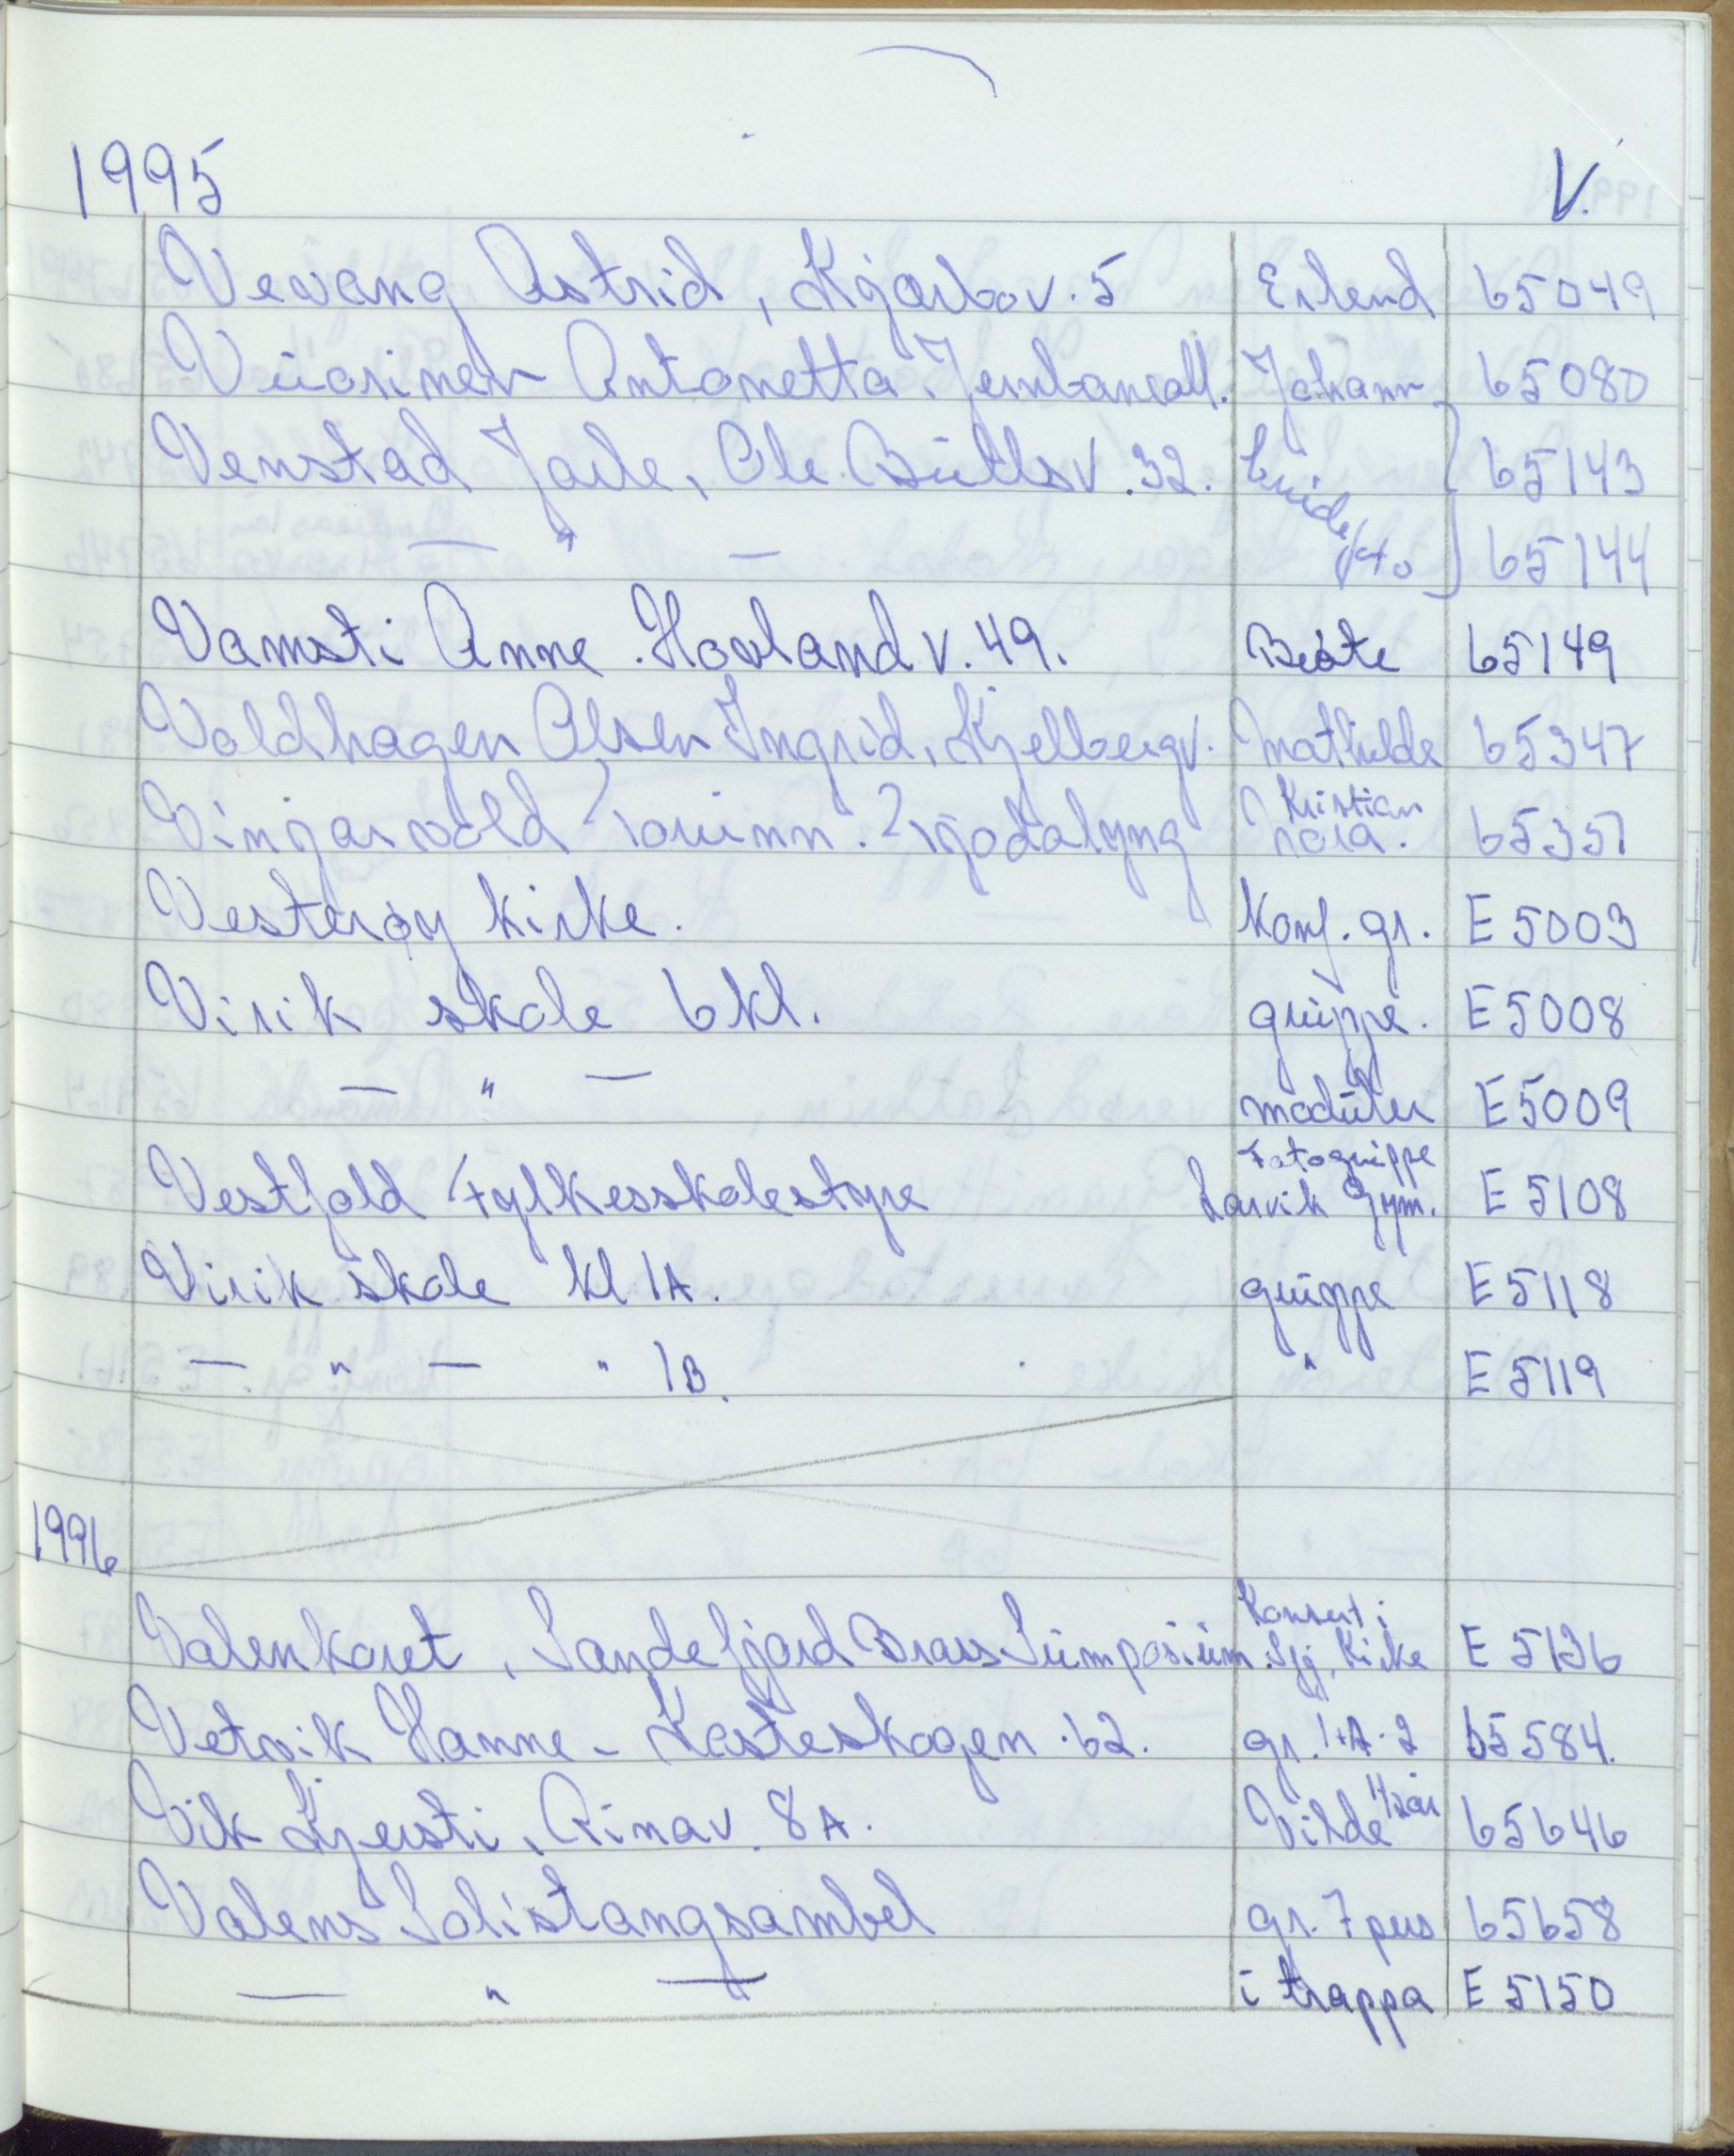 1995 V.
Vevang Astrid, Kjærbov. 5 Erlend 65049
Vuorinen Antonetta, Jernbaneall. Johann 65080
Venstad Jarle, Ole Bullsv. 32. brude 65143
— " — foto 65144
Vamsti Anne. Hovland v. 49. Beate 65149
Voldhagen Olsen Ingrid, Kjellbergv. Mathilde 65347
Vingarvold Torunn. Kristian
Nora. 65357
Vesterøy kirke. Konf. gr. E 5003
Virik skole 6kl. gruppe. E 5008
— " — moduler E 5009
Fotogruppe
Vestfold Fylkesskolestyre Larvik Gym. E 5108
Virik skole kl 1A. gruppe E 5118
— " — " 1B. " E 5119
1996
Konsert i
Valenkoret, Sandefjord Brass Sümposium. Sfj. Kirke E 5136
Vetvik Hanne - Kasteskogen. 62. gr. 1+A-2 65584.
Vik Kjersti, Rinav. 8A. Vilde 1/2 år 65646
Valens Solistangsambel gr. 7 pers 65658
— " — i trappa E 5150